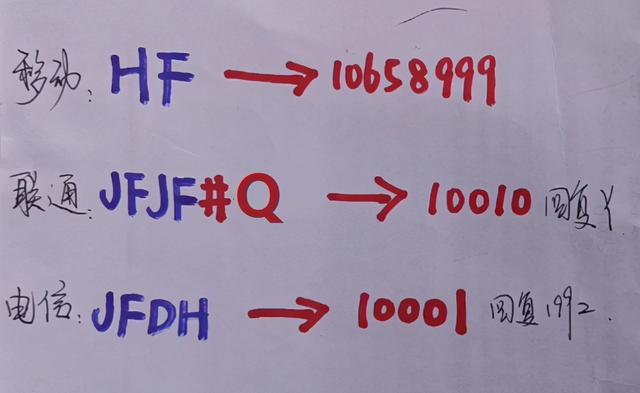 移动: HF → 10658999
联通: JFJF#Q → 10010 回复Y
电信: JFDH → 10001 回复1992.